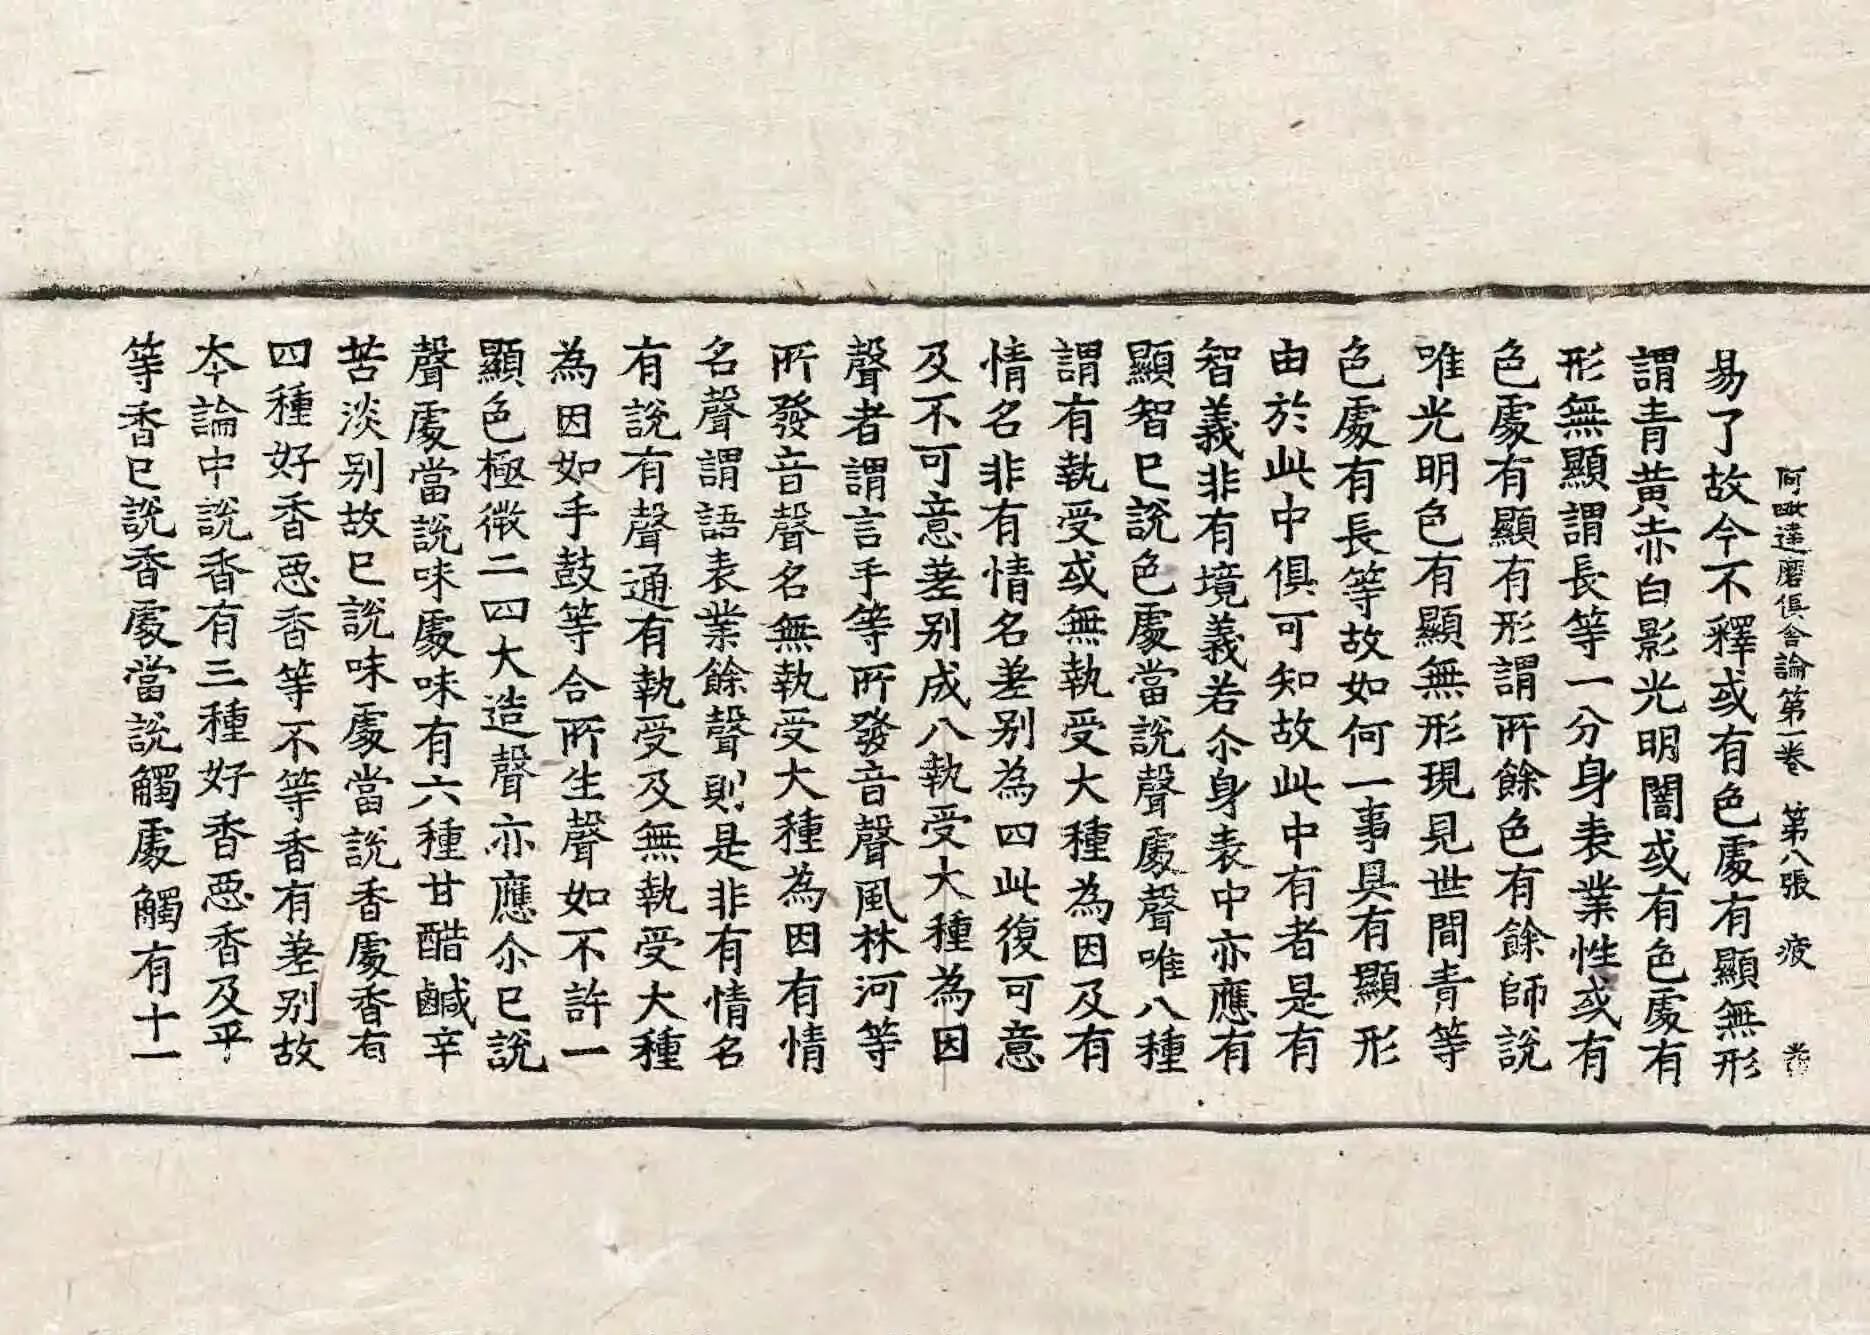 阿毗達磨俱舍論第一卷 第八張 疲
易了故今不釋或有色處有顯無形
謂青黃赤白影光明闇或有色處有
形無顯謂長等一分身表業性或有
色處有顯有形謂所餘色有餘師說
唯光明色有顯無形現見世間青等
色處有長等故如何一事具有顯形
由於此中俱可知故此中有者是有
智義非有境義若尒身表中亦應有
顯智已說色處當說聲處聲唯八種
謂有執受或無執受大種為因及有
情名非有情名差别為四此復可意
及不可意差别成八執受大種為因
聲者謂言手等所發音聲風林河等
所發音聲名無執受大種為因有情
名聲謂語表業餘聲則是非有情名
有說有聲通有執受及無執受大種
為因如手鼓等合所生聲如不許一
顯色極微二四大造聲亦應尒已說
聲處當說味處味有六種甘醋鹹辛
苦淡别故已說味處當說香處香有
四種好香惡香等不等香有差别故
本論中說香有三種好香惡香及平
等香已說香處當說觸處觸有十一